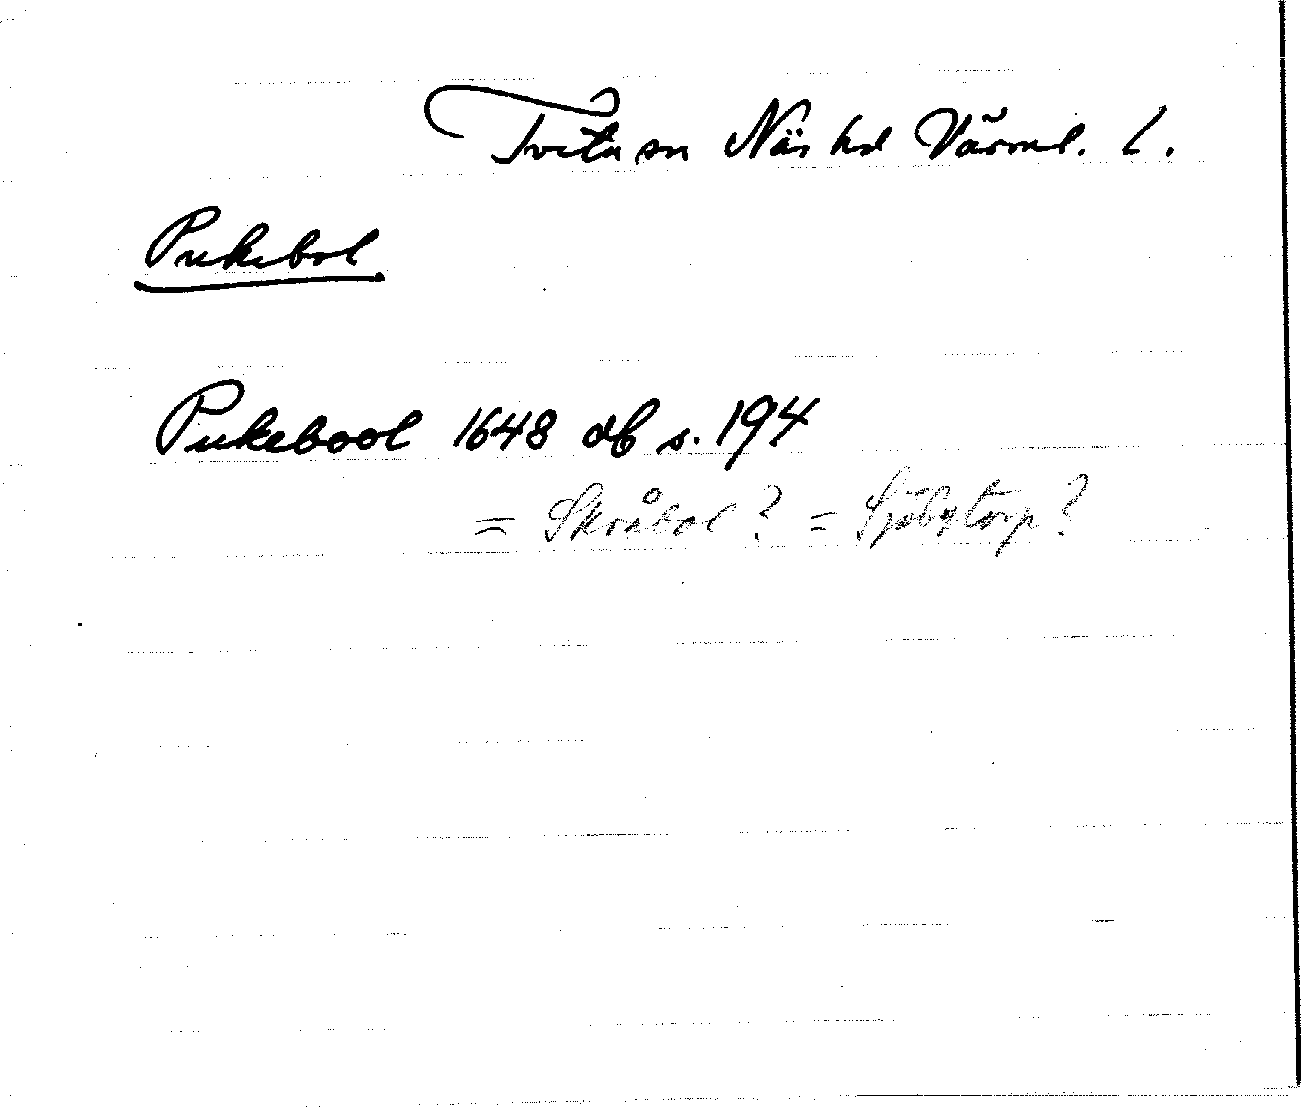 Tveta sn Näs hd Värml. l.
Pukebol
Pukebool 1648 db s. 194
= Skråbol? = Sjöbytorp?